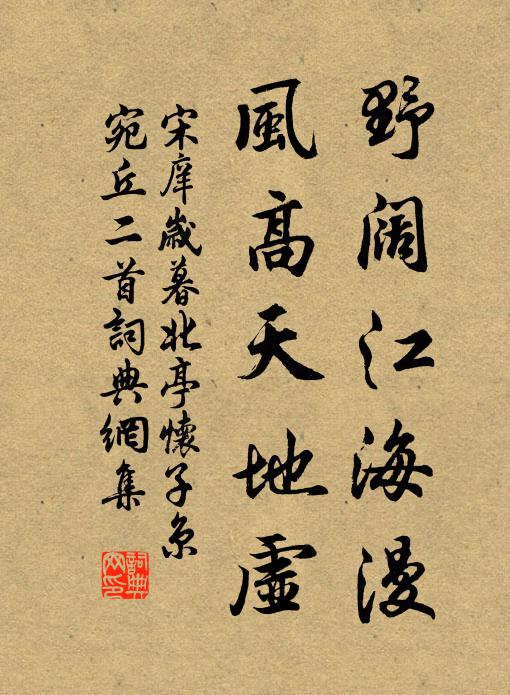 野闊江海漫
風高天地虛
宋庠歲暮北亭懷子京
宛丘二首詞典網集
詞典
网印